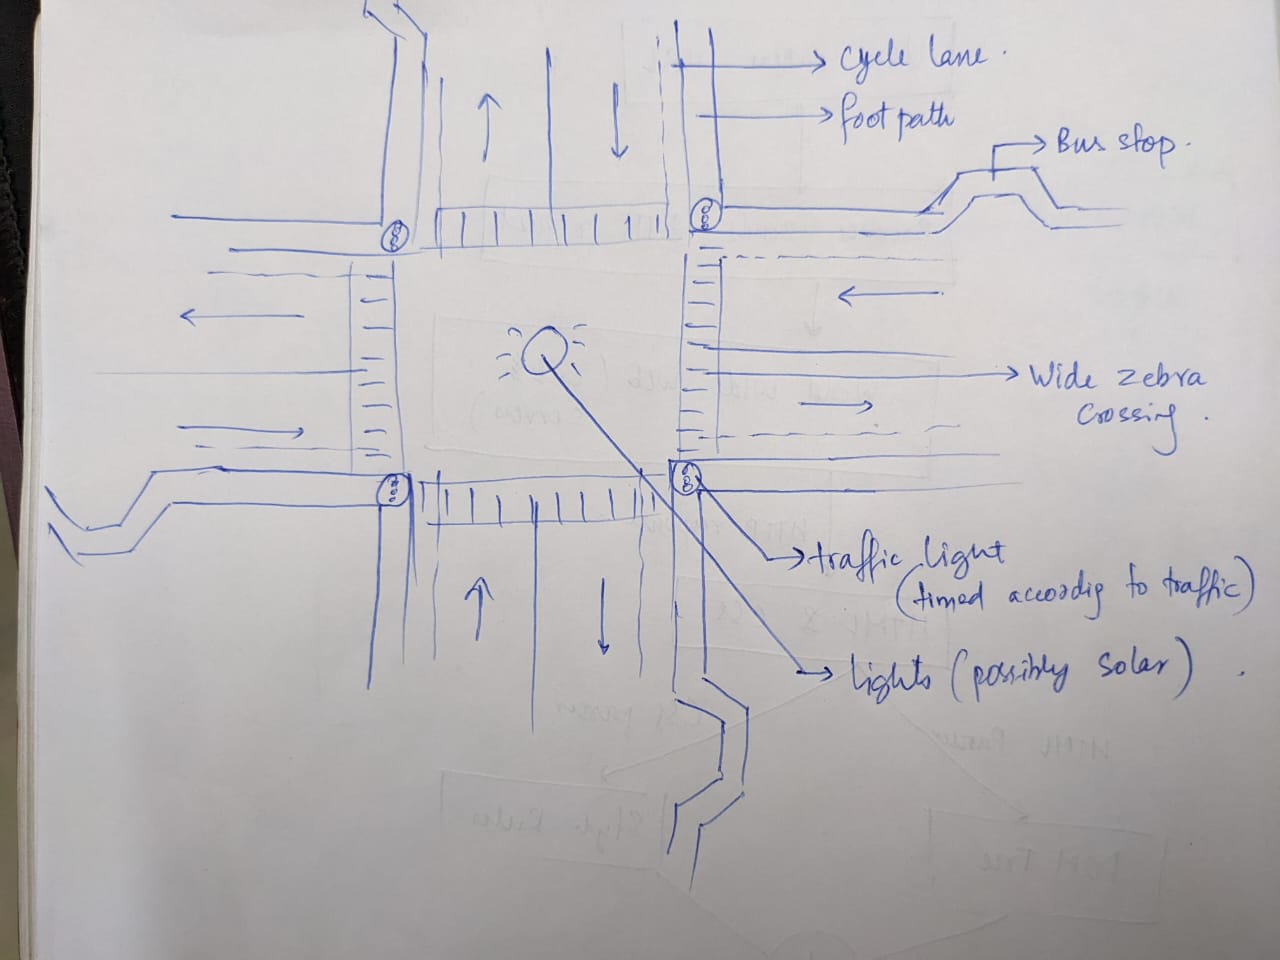 cycle lane.
foot path
Bus stop.
Wide zebra
crossing.
traffic light
(timed accordig to traffic)
lights (possibly solar).